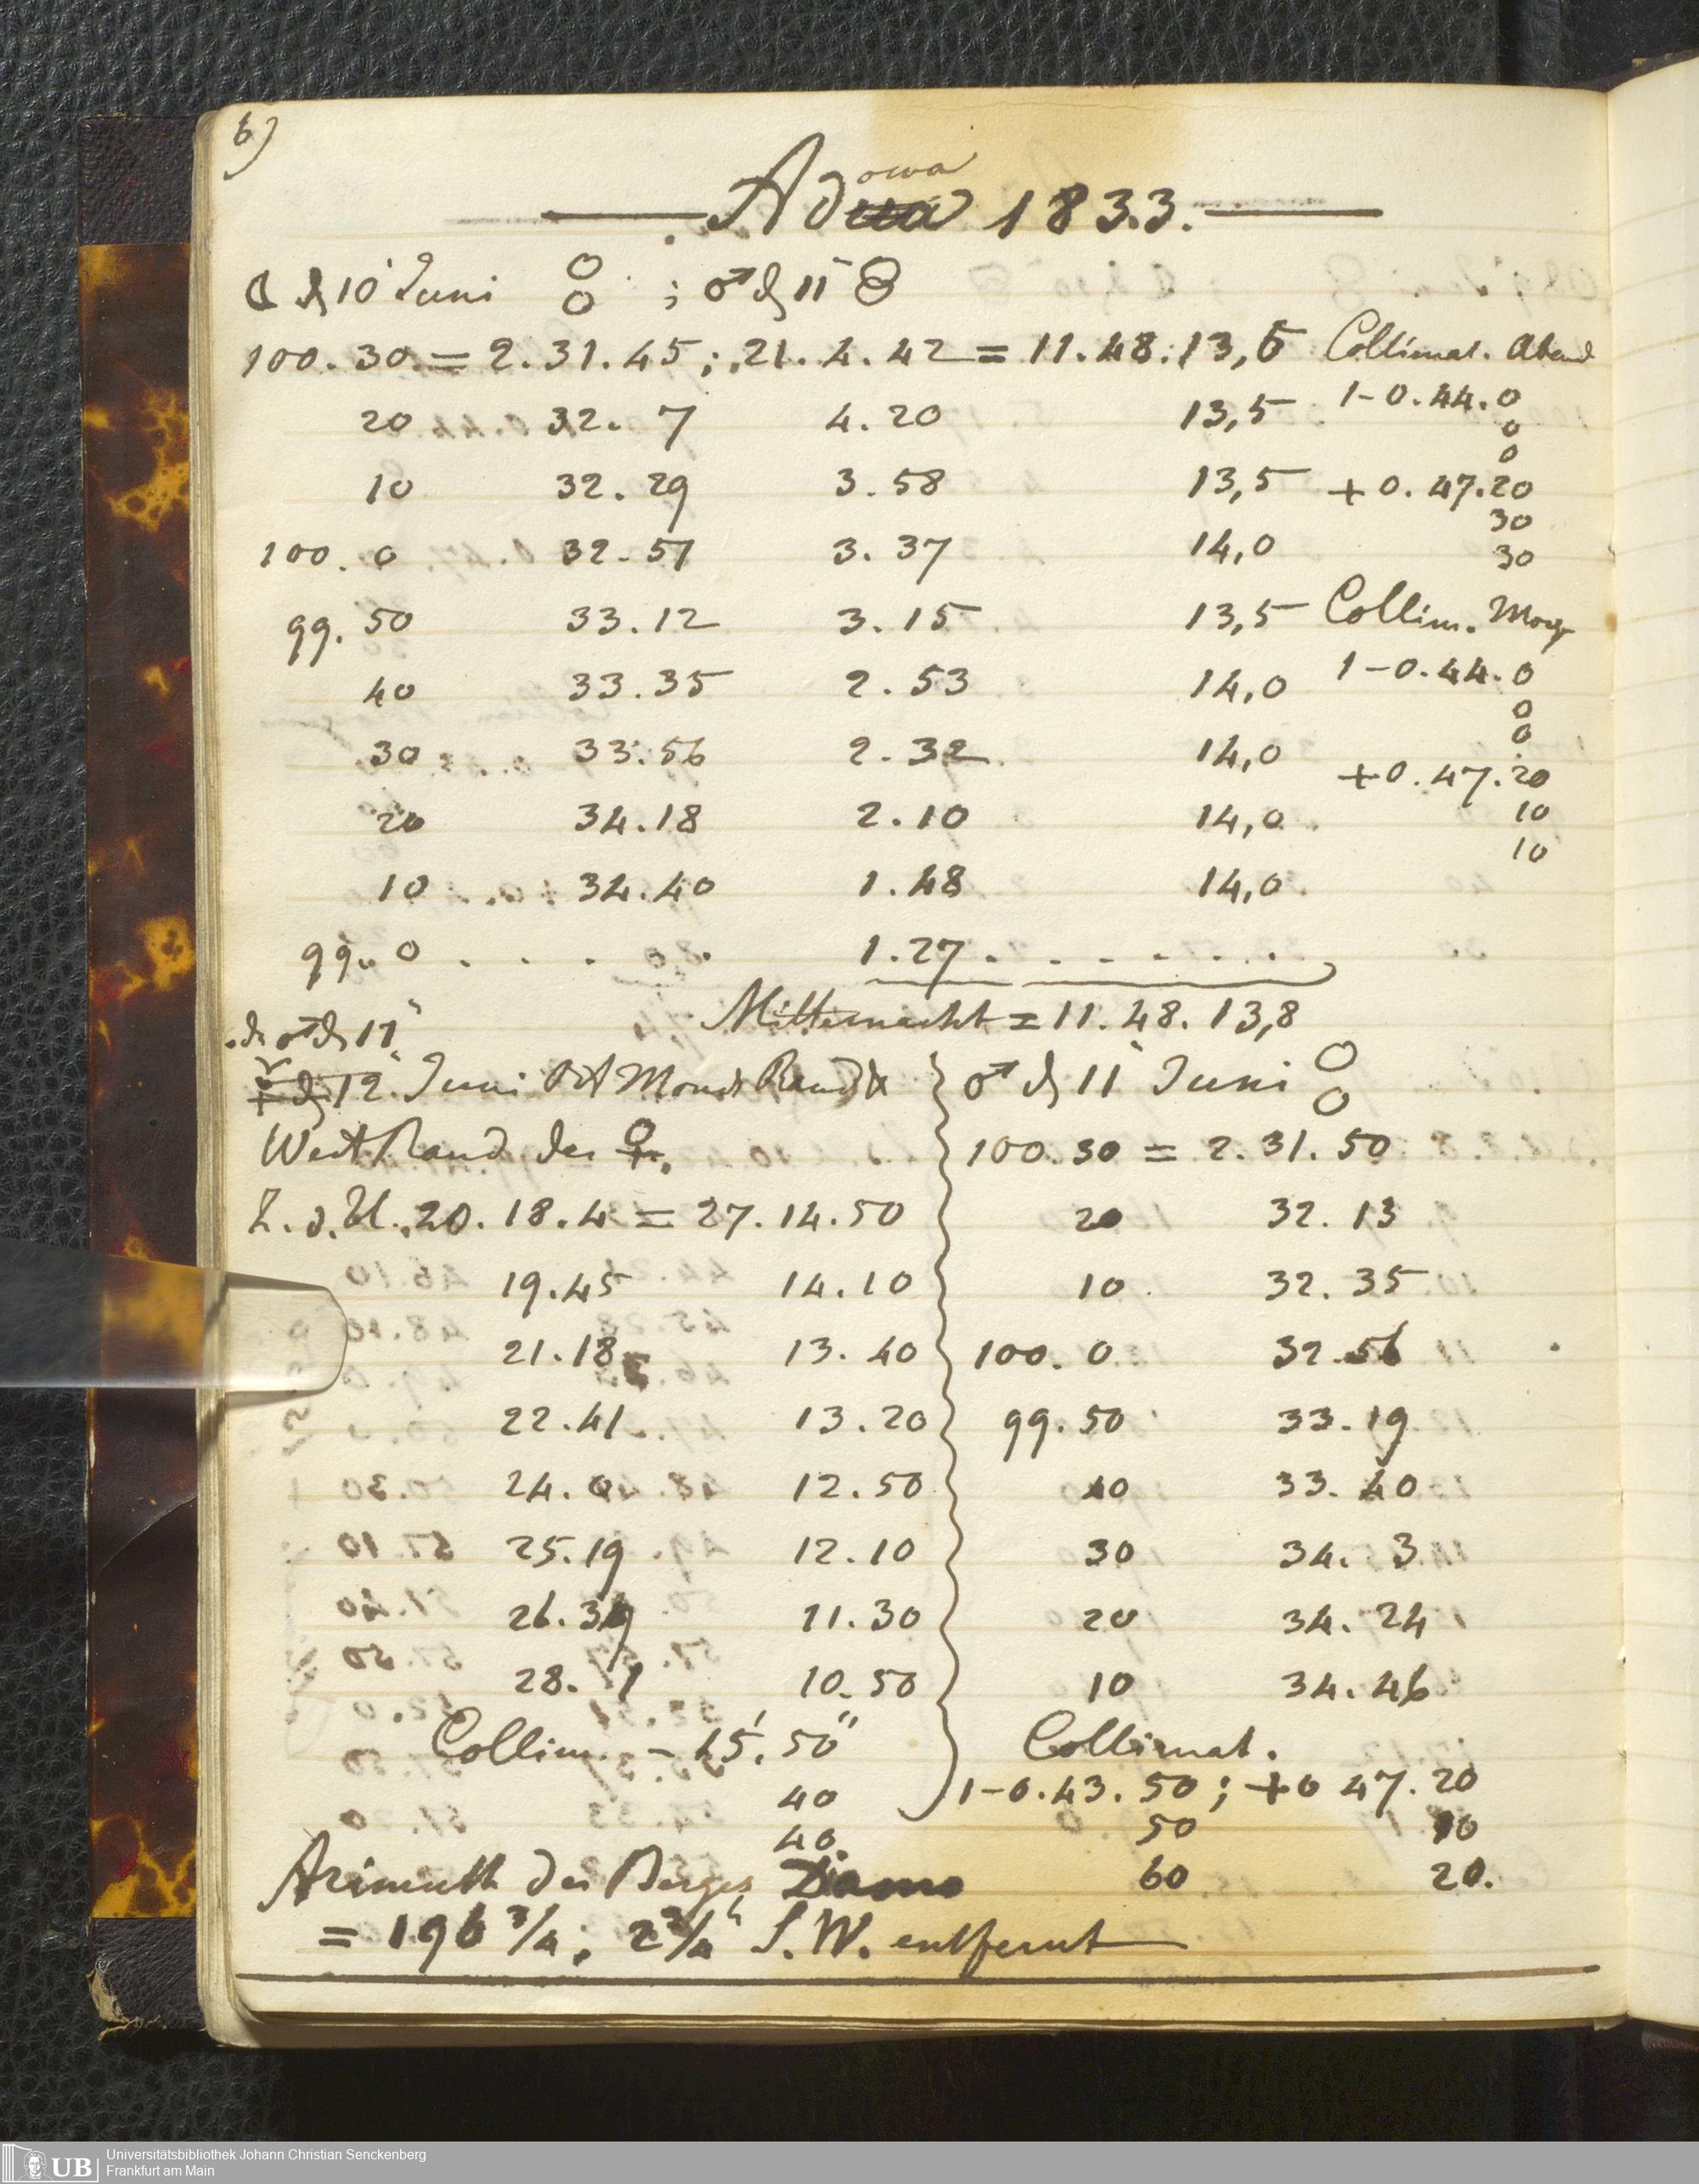 6)
Adowa 1833.
☾ d 10' Juni ; ♂ d 11'
100. 30. = 2. 31. 45 ; 21. 4. 42 = 11. 48. 13,5 Collimat. Abend
20 32. 7 4. 20 13,5 1-0.44.0
0
0
10 32. 29 3. 58 13,5 + 0. 47. 20
30
100. 0 32. 51 3. 37 14,0 30
99. 50 33. 12 3. 15 13,5 Collim. Morg
40 33. 35 2. 53 14,0 1-0.44.0
0
0
30 33. 56 2. 32 14,0 +0. 47. 20
20 34. 18 2. 10 14,0 10
10
10 34. 40 1. 48 14,0
99. 0 . . . . 1. 27 . . . . . . .
Mitternacht = 11. 48. 13,8
♂ d 11'
12' Juni Ost Monds Rand
West Rand der ♀.
Z. d. U. 20. 18. 4 = 27. 14. 50
19. 45 14. 10
21. 18 13. 40
22. 41 13. 20
24. 0 12. 50
25. 19 12. 10
26. 39 11. 30
28. 1 10. 50
Collim. - 45'. 50"
40
40.
♂ d 11' Juni
100. 30 = 2. 31. 50
20 32. 13
10 32. 35
100. 0 32. 56
99. 50 33. 19
40 33. 40
30 34. 3
20 34. 24
10 34. 46
Collimat.
1-0.43. 50 ; +0 47. 20
50 10
60 20.
Azimuth des Berges Damo
= 196 3/4 ; 2 3/4 S. W. entfernt
UB
Universitätsbibliothek Johann Christian Senckenberg
Frankfurt am Main